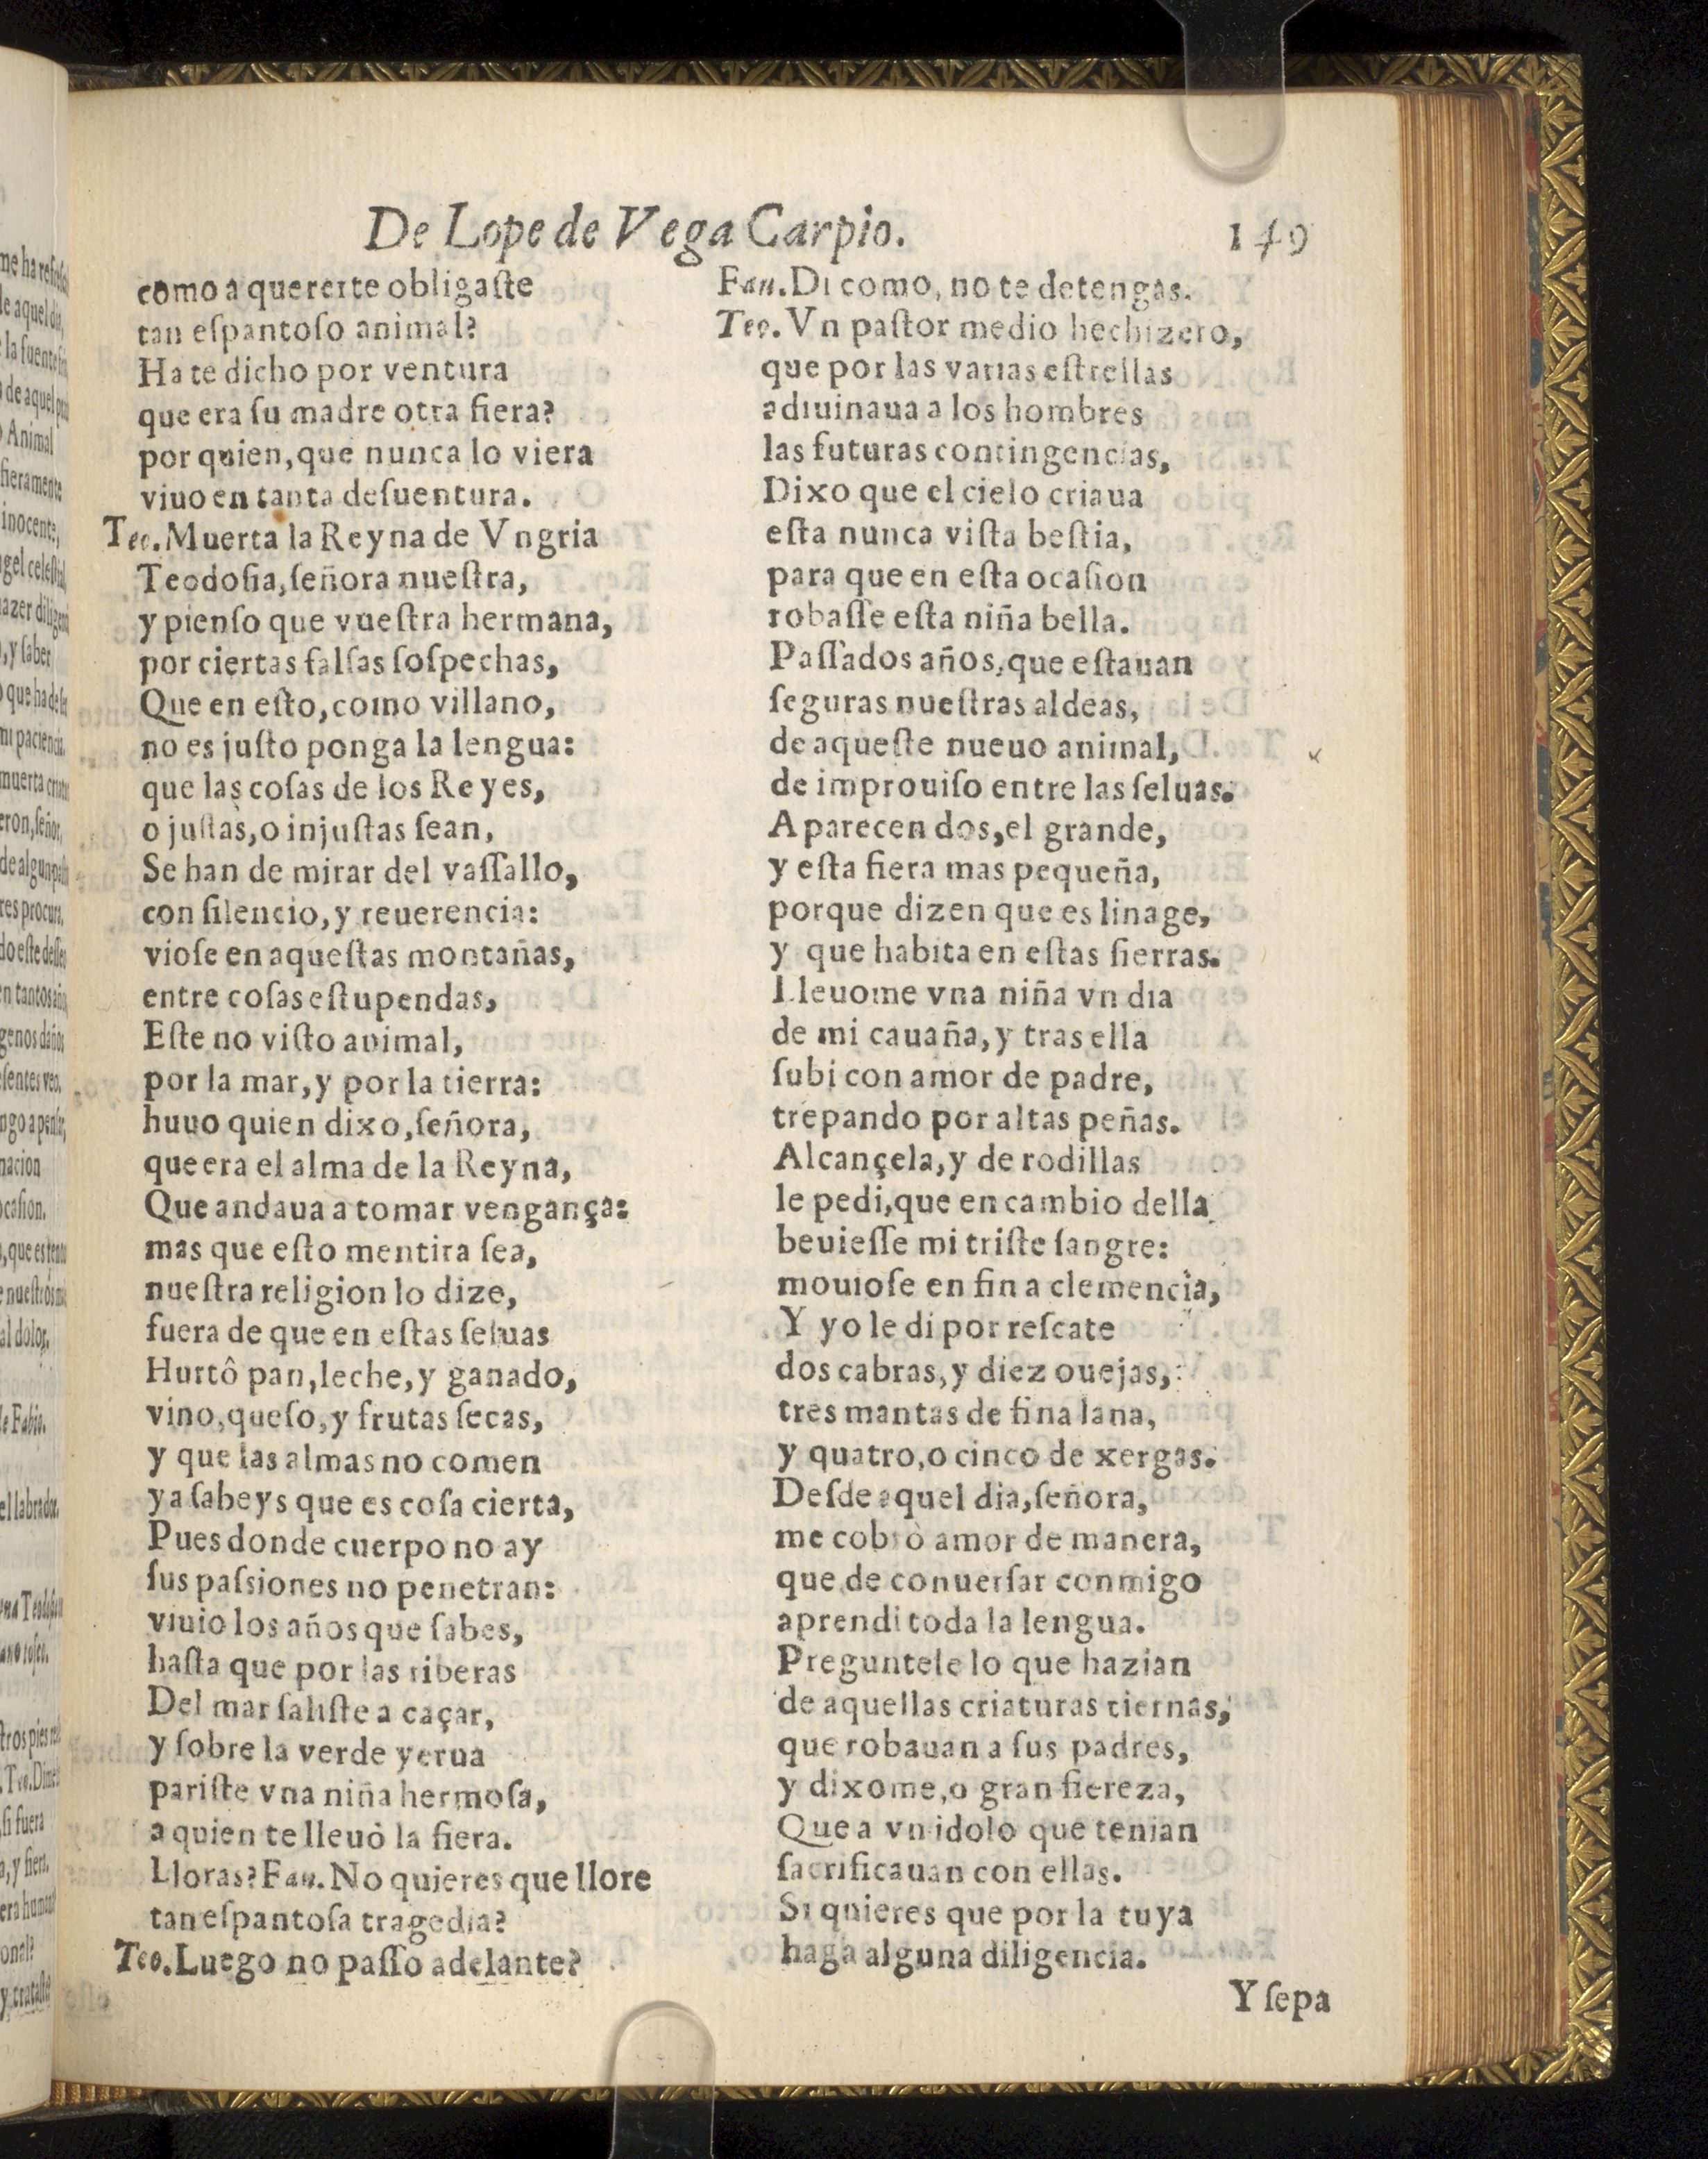 De Lope de Vega Carpio. 149
como a quererte obligaſte
tan eſpantoſo animal?
Ha te dicho por ventura
que era ſu madre otra fiera?
por quien, que nunca lo viera
viuo en tanta deſuentura.
Teo. Muerta la Reyna de Vngria
Teodoſia, ſeñora nueſtra,
y pienſo que vueſtra hermana,
por ciertas falſas ſoſpechas,
Que en eſto, como villano,
no es juſto ponga la lengua:
que las coſas de los Reyes,
o juſtas, o injuſtas ſean,
Se han de mirar del vaſſallo,
con ſilencio, y reuerencia:
vioſe en aqueſtas montañas,
entre coſas eſtupendas,
Eſte no viſto animal,
por la mar, y por la tierra:
huuo quien dixo, ſeñora,
que era el alma de la Reyna,
Que andaua a tomar vengança:
mas que eſto mentira ſea,
nueſtra religion lo dize,
fuera de que en eſtas ſeluas
Hurtô pan, leche, y ganado,
vino, queſo, y frutas ſecas,
y que las almas no comen
ya ſabeys que es coſa cierta,
Pues donde cuerpo no ay
ſus paſsiones no penetran:
viuio los años que ſabes,
haſta que por las riberas
Del mar ſaliſte a caçar,
y ſobre la verde yerua
pariſte vna niña hermoſa,
a quien te lleuò la fiera.
Lloras? Fau. No quieres que llore
tan eſpantoſa tragedia?
Teo. Luego no paſſo adelante?
Fau. Di como, no te detengas.
Teo. Vn paſtor medio hechizero,
que por las varias eſtrellas
adiuinaua a los hombres
las futuras contingencias,
Dixo que el cielo criaua
eſta nunca viſta beſtia,
para que en eſta ocaſion
robaſſe eſta niña bella.
Paſſados años, que eſtauan
ſeguras nueſtras aldeas,
de aqueſte nueuo animal,
de improuiſo entre las ſeluas.
Aparecen dos, el grande,
y eſta fiera mas pequeña,
porque dizen que es linage,
y que habita en eſtas ſierras.
Lleuome vna niña vn dia
de mi cauaña, y tras ella
ſubi con amor de padre,
trepando por altas peñas.
Alcançela, y de rodillas
le pedi, que en cambio della
beuieſſe mi triſte ſangre:
mouioſe en fin a clemencia,
Y yo le di por reſcate
dos cabras, y diez ouejas,
tres mantas de fina lana,
y quatro, o cinco de xergas.
Deſde aquel dia, ſeñora,
me cobrò amor de manera,
que de conuerſar conmigo
aprendi toda la lengua.
Preguntele lo que hazian
de aquellas criaturas tiernas,
que robauan a ſus padres,
y dixome, o gran fiereza,
Que a vn idolo que tenian
ſacrificauan con ellas.
Si quieres que por la tuya
haga alguna diligencia.
Y ſepa